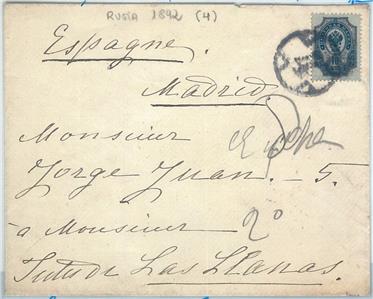 RUSIA 1892 (4)
Espagne.
Madrid.
Monsieur
Jorge Juan. — 5.
à Monsieur 2º
de Las Llanas.